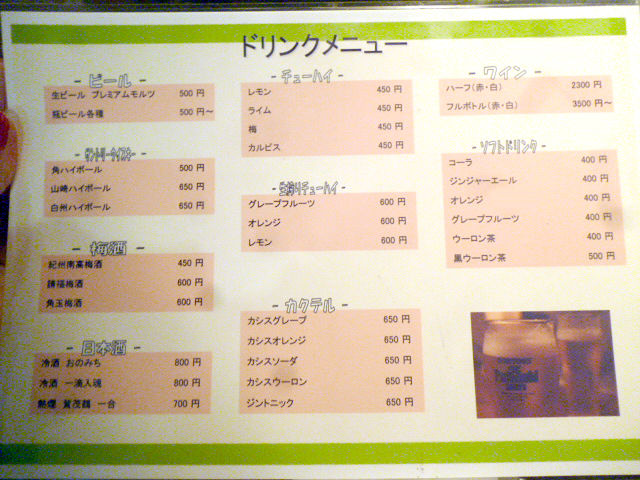 ドリンクメニュー
- ビール -
生ビール プレミアムモルツ 500 円
瓶ビール各種 500 円～
角ハイボール 500 円
山崎ハイボール 650 円
白州ハイボール 650 円
- 梅酒 -
紀州南高梅酒 450 円
請福梅酒 600 円
角玉梅酒 600 円
- 日本酒 -
冷酒 おのみち 800 円
冷酒 一滴入魂 800 円
熱燗 賀茂鶴 一合 700 円
- チューハイ -
レモン 450 円
ライム 450 円
梅 450 円
カルピス 450 円
- 生搾りチューハイ -
グレープフルーツ 600 円
オレンジ 600 円
レモン 600 円
- カクテル -
カシスグレープ 650 円
カシスオレンジ 650 円
カシスソーダ 650 円
カシスウーロン 650 円
ジントニック 650 円
- ワイン -
ハーフ(赤・白) 2300 円
フルボトル(赤・白) 3500 円～
- ソフトドリンク -
コーラ 400 円
ジンジャーエール 400 円
オレンジ 400 円
グレープフルーツ 400 円
ウーロン茶 400 円
黒ウーロン茶 500 円